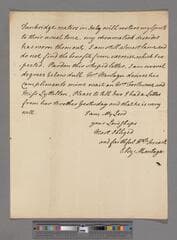 Tunbridge waters in July will restore my spirits
to their usual tone, my rheumatick disorder
has worn them out. I am still almost lame and
do not find the benefit from exercise which I ex
pected. Pardon this stupid letter, I am several
degrees below dull. Mr Montagu desires his
compliments, mine wait on
Miss Lyttelton. Please to tell her I had a Letter
from her Brother Yesterday and that he is very
well.
I am My Lord
your Lordships
Most Obliged
and faithful
Eliz Montagu